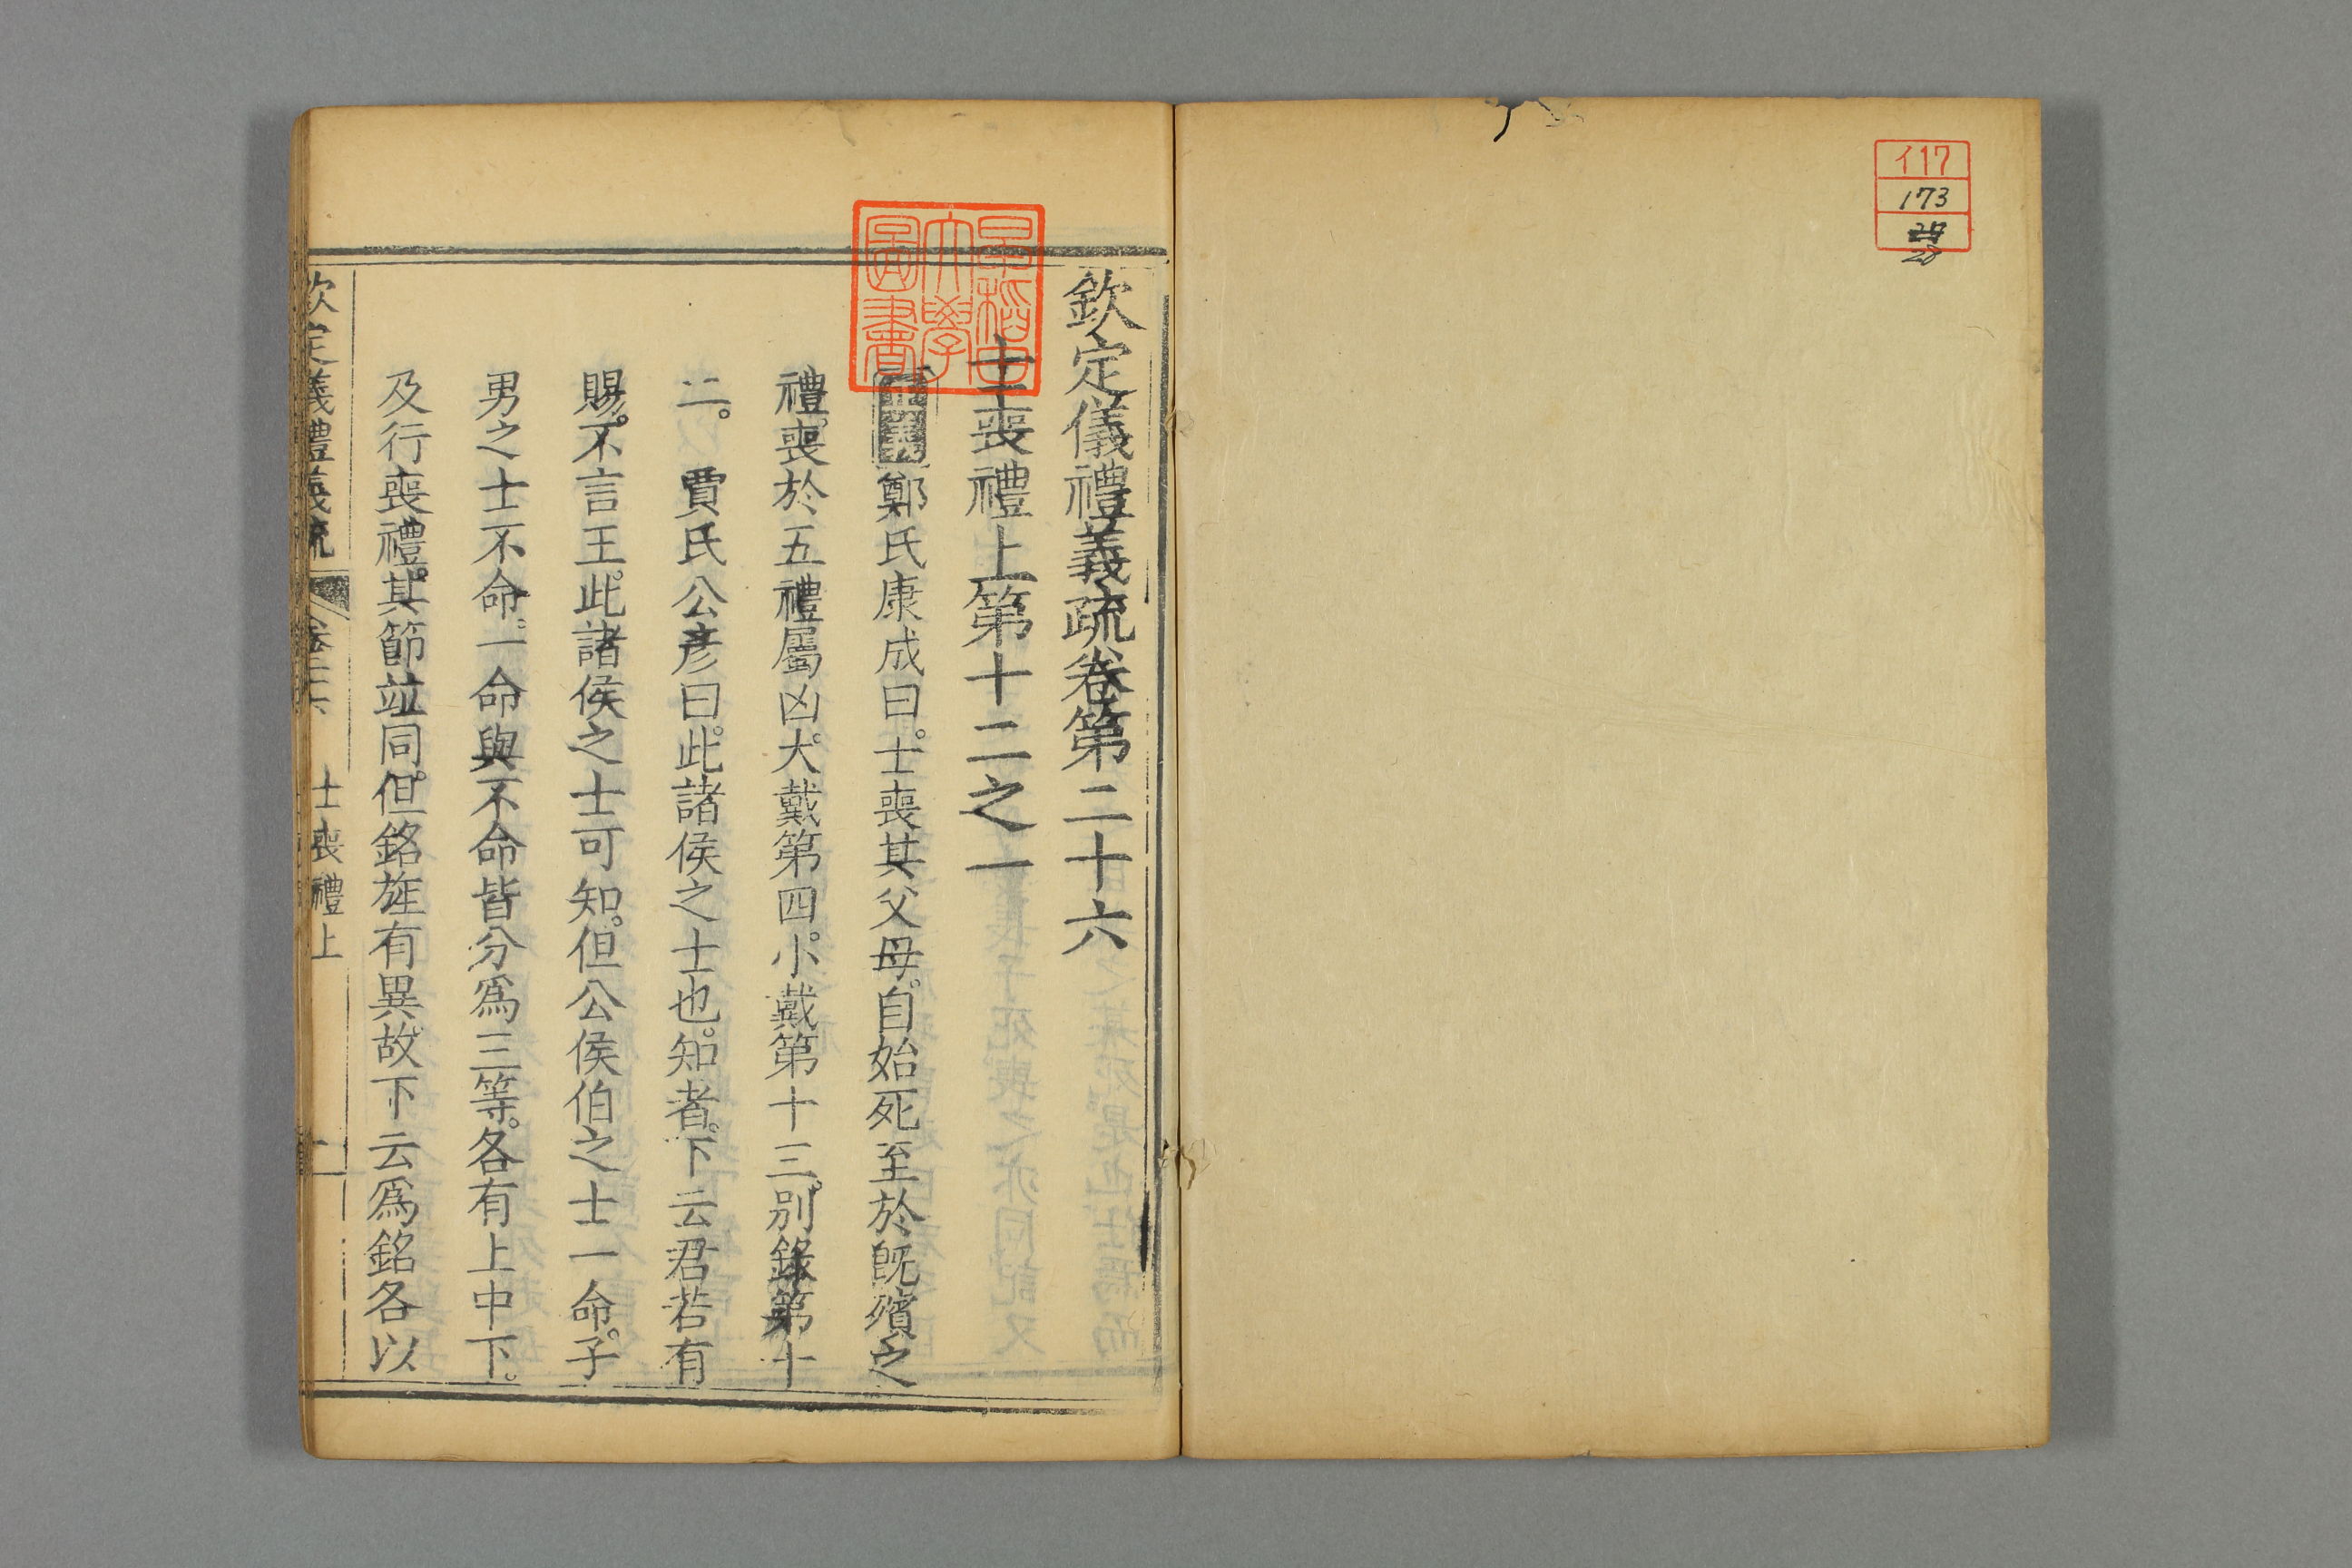 イ17
173
28
早稲田
大學
圖書
欽定儀禮義疏卷第二十六
士喪禮上第十二之一
正義鄭氏康成曰。士喪其父母。自始死至於旣殯之
禮。喪於五禮屬凶。大戴第四。小戴第十三。別錄第十
二。 賈氏公彥曰。此諸侯之士也。知者。下云君若有
賜。不言王。此諸侯之士可知。但公侯伯之士一命。子
男之士不命。一命與不命皆分爲三等。各有上中下。
及行喪禮。其節竝同。但銘旌有異。故下云爲銘各以
欽定儀禮義疏 卷二十六 士喪禮上 一